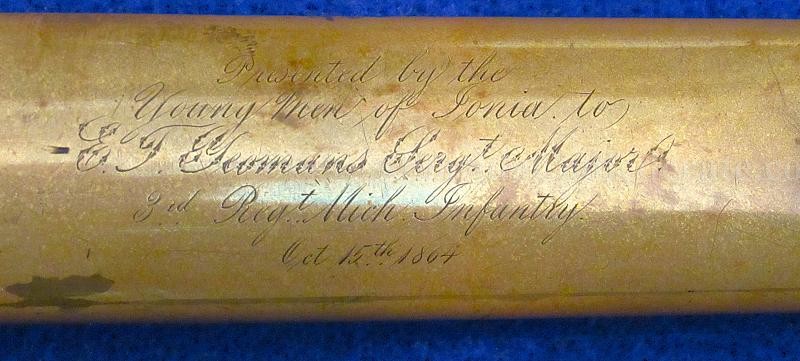 Presented by the
Young Men of Ionia to
E. F. Yeomans Sergt. Major.
3rd Regt. Mich. Infantry.
Oct 15th 1864